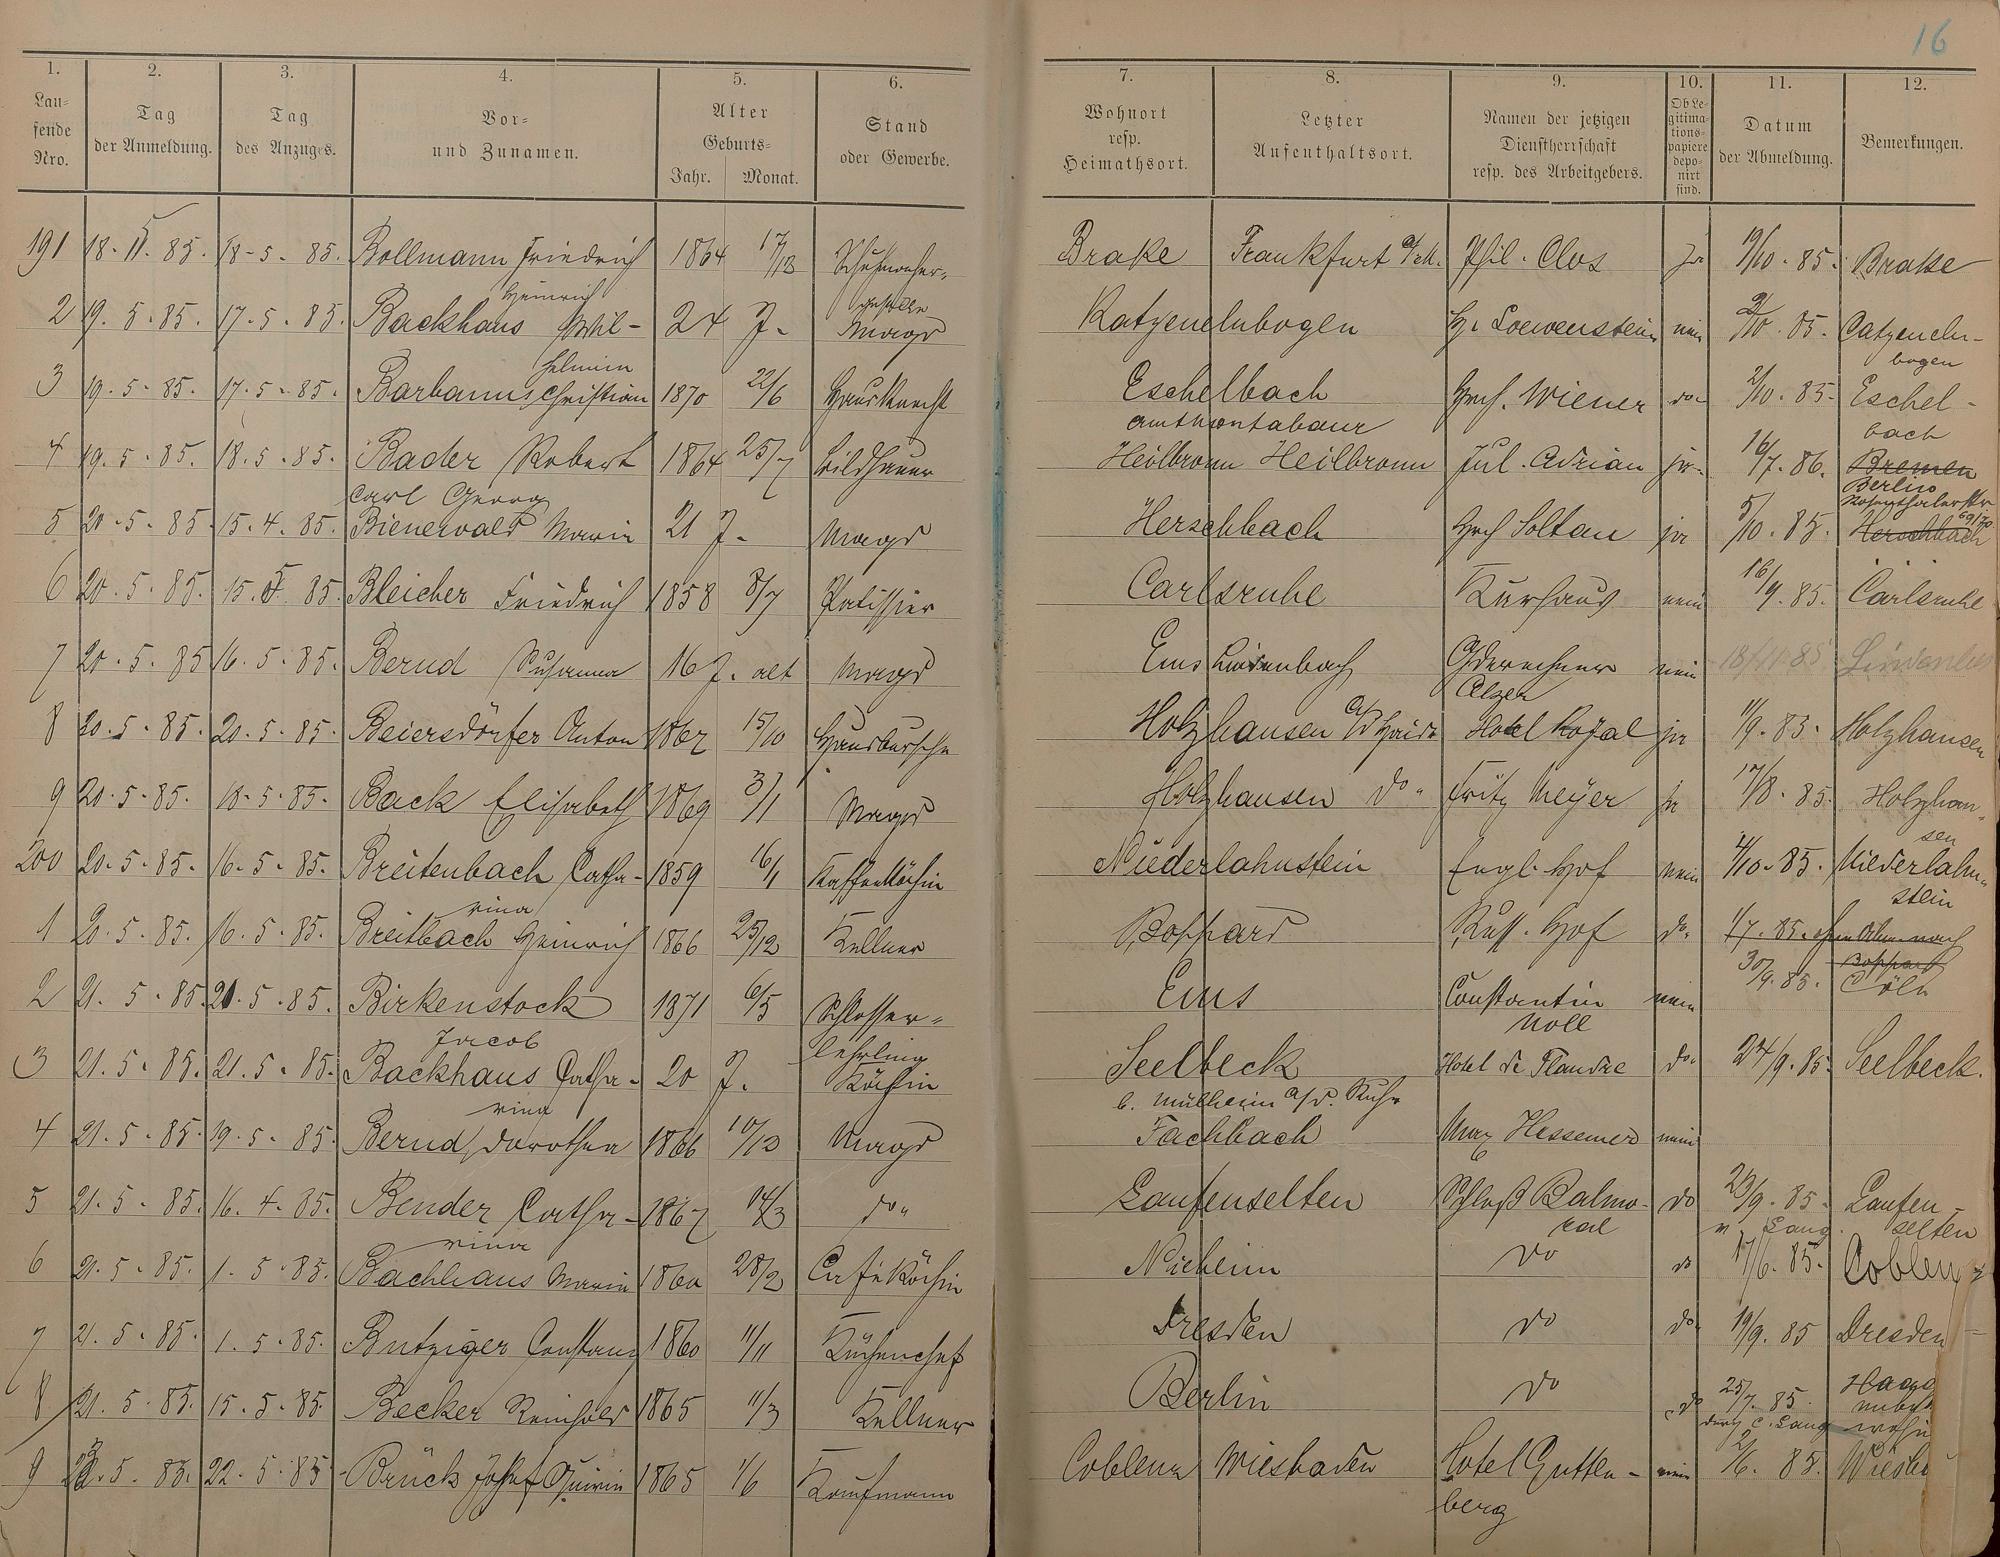 16
1. 2. 3. 4. 5. 6. 7. 8. 9. 10. 11. 12.
Lau-
fende
Nro.
Tag
der Anmeldung.
Tag
des Anzuges.
Vor-
und Zunamen.
Alter
Geburts-
Jahr. Monat.
Stand
oder Gewerbe.
Wohnort
resp.
Heimathsort.
Letzter
Aufenthaltsort.
Namen der jetzigen
Dienstherrschaft
resp. des Arbeitgebers.
Ob Le-
gitima-
tions-
papiere
depo-
nirt
sind.
Datum
der Abmeldung.
Bemerkungen.
191 18. 5. 85. 18-5. 85. Bollmann Friedrich 1864 17/12 Schuhmacher- Brake Frankfurt a/M. Phil. Clos Ja 19/10. 85. Brake
Heinrich geselle
2 19. 5. 85. 17. 5. 85. Backhaus Wil- 24 J. Magd Katzenelnbogen H. Loewenstein nein 2/10. 85. Catzeneln-
helmine bogen
3 19. 5. 85. 17. 5. 85. Barbanus Christian 1870 22/6 Hausknecht Eschelbach Hch. Wiener do 2/10. 85. Eschel-
Amt Montabaur bach
4 19. 5. 85. 18. 5. 85. Bader Robert 1864 25/7 Bildhauer Heilbronn Heilbronn Jul. Adrian ja 16/7. 86. Bremen
Carl Georg Berlin
Rosenthalerstr
69/70
5 20. 5. 85 15. 4. 85. Bienewald Marie 21 J. Magd Herschbach Hch Soltau ja 5/10. 85. Herschbach
6 20. 5. 85. 15. 5. 85. Bleicher Friedrich 1858 8/7 Patissier Carlsruhe Kurhaus nein 16/9. 85. Carlsruhe
7 20. 5. 85 16. 5. 85. Bernd Susanna 16 J. alt Magd Ems Lindenbach nein 18/11 85
8 20. 5. 85. 20. 5. 85. Beiersdörfer Anton 1867 15/10 Hausbursche Holzhausen a/d Haide Hotel Royal ja 11/9. 85. Holzhausen
9 20. 5. 85. 18. 5. 85. Back Elisabeth 1869 3/1 Magd Holzhausen do Fritz Meyer ja 17/8. 85. Holzhau-
sen
200 20. 5. 85. 16. 5. 85. Breitenbach Catha- 1859 16/1 Kaffeeköchin Niederlahnstein Engl. Hof nein 4/10. 85. Niederlahn-
rina stein
1 20. 5. 85. 16. 5. 85. Breitbach Heinrich 1866 25/12 Kellner Boppard Russ. Hof do. 1/7. 85. nach
Boppard
30/9. 85. Cöln
2 21. 5. 85. 21. 5. 85. Birkenstock 1871 6/5 Schlosser- Ems Constantin nein
Jacob lehrling Noll
3 21. 5. 85. 21. 5. 85. Backhaus Catha- 20 J. Köchin Seelbeck Hotel de Flandre do 24/9. 85. Seelbeck.
rina b. Mülheim a/d. Ruhr
4 21. 5. 85. 19. 5. 85. Bernd, Dorothea 1866 10/12 Magd Fachbach Max Hessemer nein
5 21. 5. 85. 16. 4. 85. Bender Catha- 1867 14/3 do Laufenselten Schloß Balmo- do 29/9. 85. Laufen-
rina ral n. Lang. selten
6 21. 5. 85. 1. 5. 85. Bachhaus Marie 1860 28/2 Caféköchin Nieheim do do 17/6. 85. Coblenz
7 21. 5. 85. 1. 5. 85. Butziger Constanz 1860 11/11 Küchenchef Dresden do do 19/9. 85 Dresden
8 21. 5. 85. 15. 5. 85. Becker Reinhold 1865 11/3 Kellner Berlin do do 25/7. 85.
durch C. Lang
9 22. 5. 85. 22. 5. 85 Brück Josef Quirin 1865 1/6 Kaufmann Coblenz Wiesbaden Hotel Gutten- nein 2/6. 85. Wiesb
berg